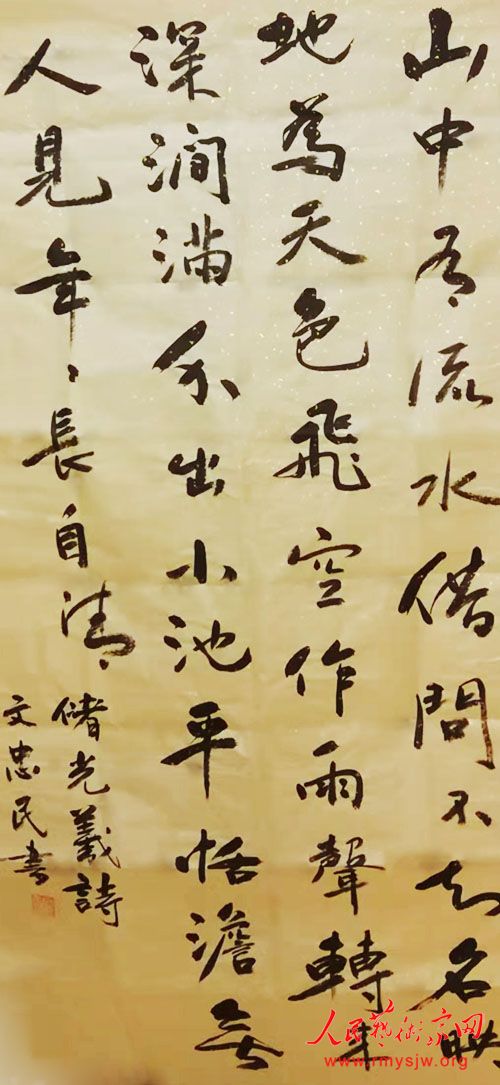 山中有流水借問不知名映
地為天色飛空作雨聲轉来
深澗滿分出小池平恬澹無
人見年々長自清
儲光羲詩
文忠民書
人民藝術家网
www.rmysjw.org